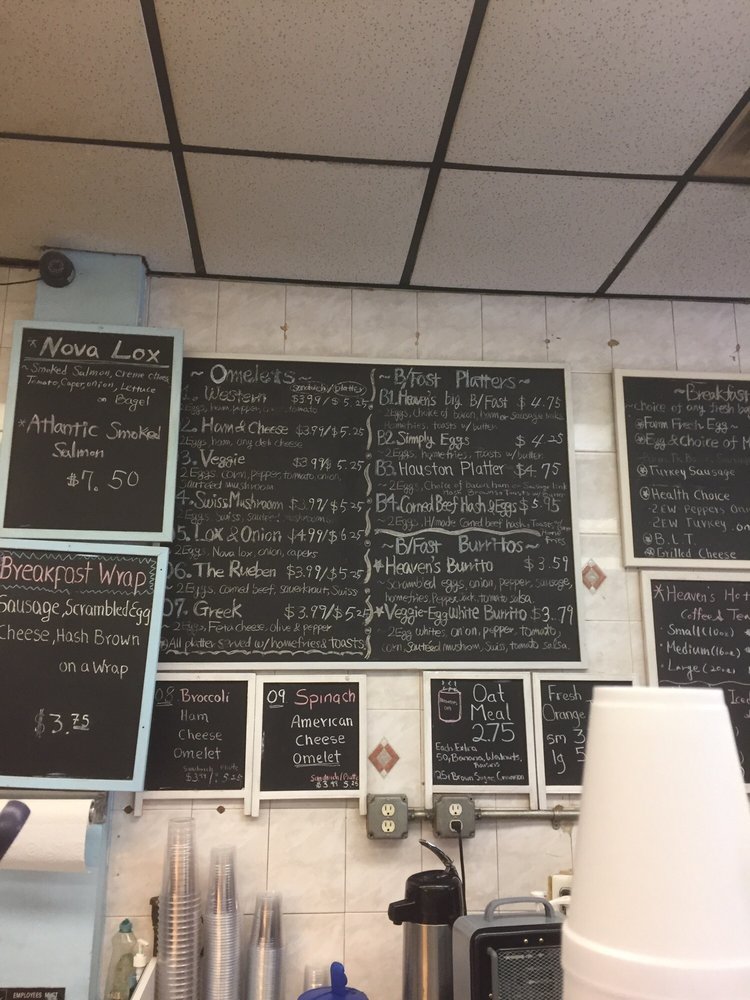 *Nova Lox
~Smoked Salmon, creme chees,
Tomato, Caper, onion, Lettuce
on Bagel
*Atlantic Smoked
Salmon
$7.50
Breakfast Wrap
Sausage, Scrambled Egg
Cheese, Hash Brown
on a Wrap
$3.75
~Omelets~
(Sandwich/platter)
1. Western $3.99/$5.25
2 Eggs, ham, pepper, tomato
2. Ham & Cheese $3.99/$5.25
2 Eggs ham, any deli cheese
3. Veggie $3.99/$5.25
2 Eggs, corn, pepper, tomato, onion,
Sauteed mushroom
4. Swiss Mushroom $3.99/$5.25
2 Eggs, Swiss, sauteed mushroom
5. Lox & Onion $4.99/$6.25
2 Eggs, Nova lox, onion, capers
06. The Rueben $3.99/$5.25
2 Eggs, Corned beef, sauerkraut, Swiss
07. Greek $3.99/$5.25
2 Eggs, Feta cheese, olive & pepper
All platter served w/ homefries & toasts
~B/Fast Platters~
B1. Heaven's big B/Fast $4.75
2 Eggs, Choice of bacon, ham or Sausage link,
Homefries, toasts w/ butter
B2. Simply Eggs $4.25
~2 Eggs, homefries, toasts w/ butter
B3. Houston Platter $4.75
~2 Eggs, Choice of bacon, ham or Sausage link
Hash Browns & Toasts w/ Butter
B4. Corned Beef Hash & Eggs $5.95
~2 Eggs, H/made Corned beef hash, Toast
Home Fries
~B/Fast Burritos~
*Heaven's Burrito $3.59
~Scrambled eggs, onion, pepper, sausage,
homefries, Pepper Jack, tomato salsa
*Veggie-Egg White Burrito $3.79
~2 Egg whites, onion, pepper, tomato,
corn, Sauteed mushroom, Swiss, tomato salsa.
~Breakfast
~Choice of any fresh ba
Farm Fresh Egg~
Egg & Choice of M
Turkey Sausage
Health Choice
-2EW Peppers Oni
-2EW Turkey, on
B.L.T.
Grilled Cheese
*Heaven's Hot
Coffee & Tea
*Small (10oz)
*Medium (16oz)
*Large (20oz)
Iced
08 Broccoli
Ham
Cheese
Omelet
Sandwich/Platter
$3.99/$5.25
09 Spinach
American
Cheese
Omelet
Sandwich/Platter
$3.99 5.25
Oat
Meal
2.75
Each Extra
50¢ Banana, Walnuts,
Raisins
25¢ Brown Sugar, Cinnamon
Fresh
Orange
sm 3
lg 5
EMPLOYEES MUST